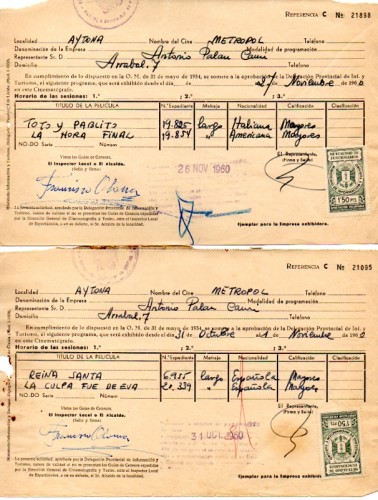 REFERENCIA C Nº 21898
Localidad AYTONA Nombre del Cine METROPOL Teléfono
Denominación de la Empresa Modalidad de programación
Representante Sr. D. Antonio Palau Teléfono
Domicilio Arrabal, 7
En cumplimiento de lo dispuesto en la O. M. de 31 de mayo de 1954, se somete a la aprobación de la Delegación Provincial de Inf. y
Turismo, el siguiente programa, que será exhibido desde el día de 27 Noviembre de 1960
en este Cinematógrafo.
Horario de las sesiones: 1.ª 2.ª 3.ª
TITULO DE LA PELICULA N.º Expediente Metraje Nacionalidad Clasificación Calificación
TOTO Y PABLITO 19.825 largo Italiana Mayores
LA HORA FINAL 19.854 " Americana Mayores
NO-DO Serie Número
Vistas las Guías de Censura,
El Inspector Local o El Alcalde,
(Sello y firma)
El Representante,
(Firma y Sello)
26 NOV 1960
1'50 PTS
Ejemplar para la Empresa exhibidora.
REFERENCIA C Nº 21095
Localidad AYTONA Nombre del Cine METROPOL Teléfono
Denominación de la Empresa Modalidad de programación
Representante Sr. D. Antonio Palau Teléfono
Domicilio Arrabal, 7
En cumplimiento de lo dispuesto en la O. M. de 31 de mayo de 1954, se somete a la aprobación de la Delegación Provincial de Inf. y
Turismo, el siguiente programa, que será exhibido desde el día 31 Octubre 1 Noviembre de 1960
en este Cinematógrafo.
Horario de las sesiones: 1.ª 2.ª 3.ª
TITULO DE LA PELICULA N.º Expediente Metraje Nacionalidad Clasificación Calificación
REINA SANTA 6.955 largo Española Mayores
LA CULPA FUE DE EVA 20.339 " Española Mayores
NO-DO Serie Número
Vistas las Guías de Censura,
El Inspector Local o El Alcalde,
(Sello y firma)
El Representante,
(Firma y Sello)
31 OCT. 1960
Ejemplar para la Empresa exhibidora.